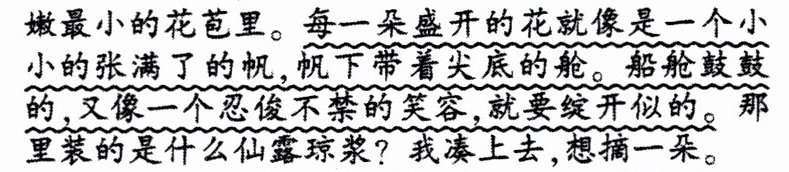 嫩最小的花苞里。每一朵盛开的花就像是一个小
小的张满了的帆,帆下带着尖底的舱。船舱鼓鼓
的,又像一个忍俊不禁的笑容,就要绽开似的。那
里装的是什么仙露琼浆?我凑上去,想摘一朵。